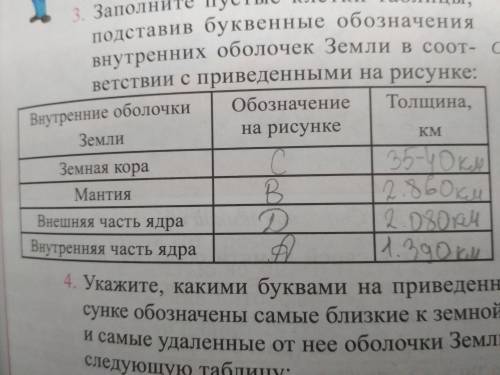 3. Заполните пустые клетки таблицы,
подставив буквенные обозначения
внутренних оболочек Земли в соот-
ветствии с приведенными на рисунке:
Внутренние оболочки Земли Обозначение на рисунке Толщина, км
Земная кора C 35-40км
Мантия B 2.860км
Внешняя часть ядра D 2.080км
Внутренняя часть ядра A 1.390км
4. Укажите, какими буквами на приведенн
сунке обозначены самые близкие к земной
и самые удаленные от нее оболочки Земли
следующую таблицу: